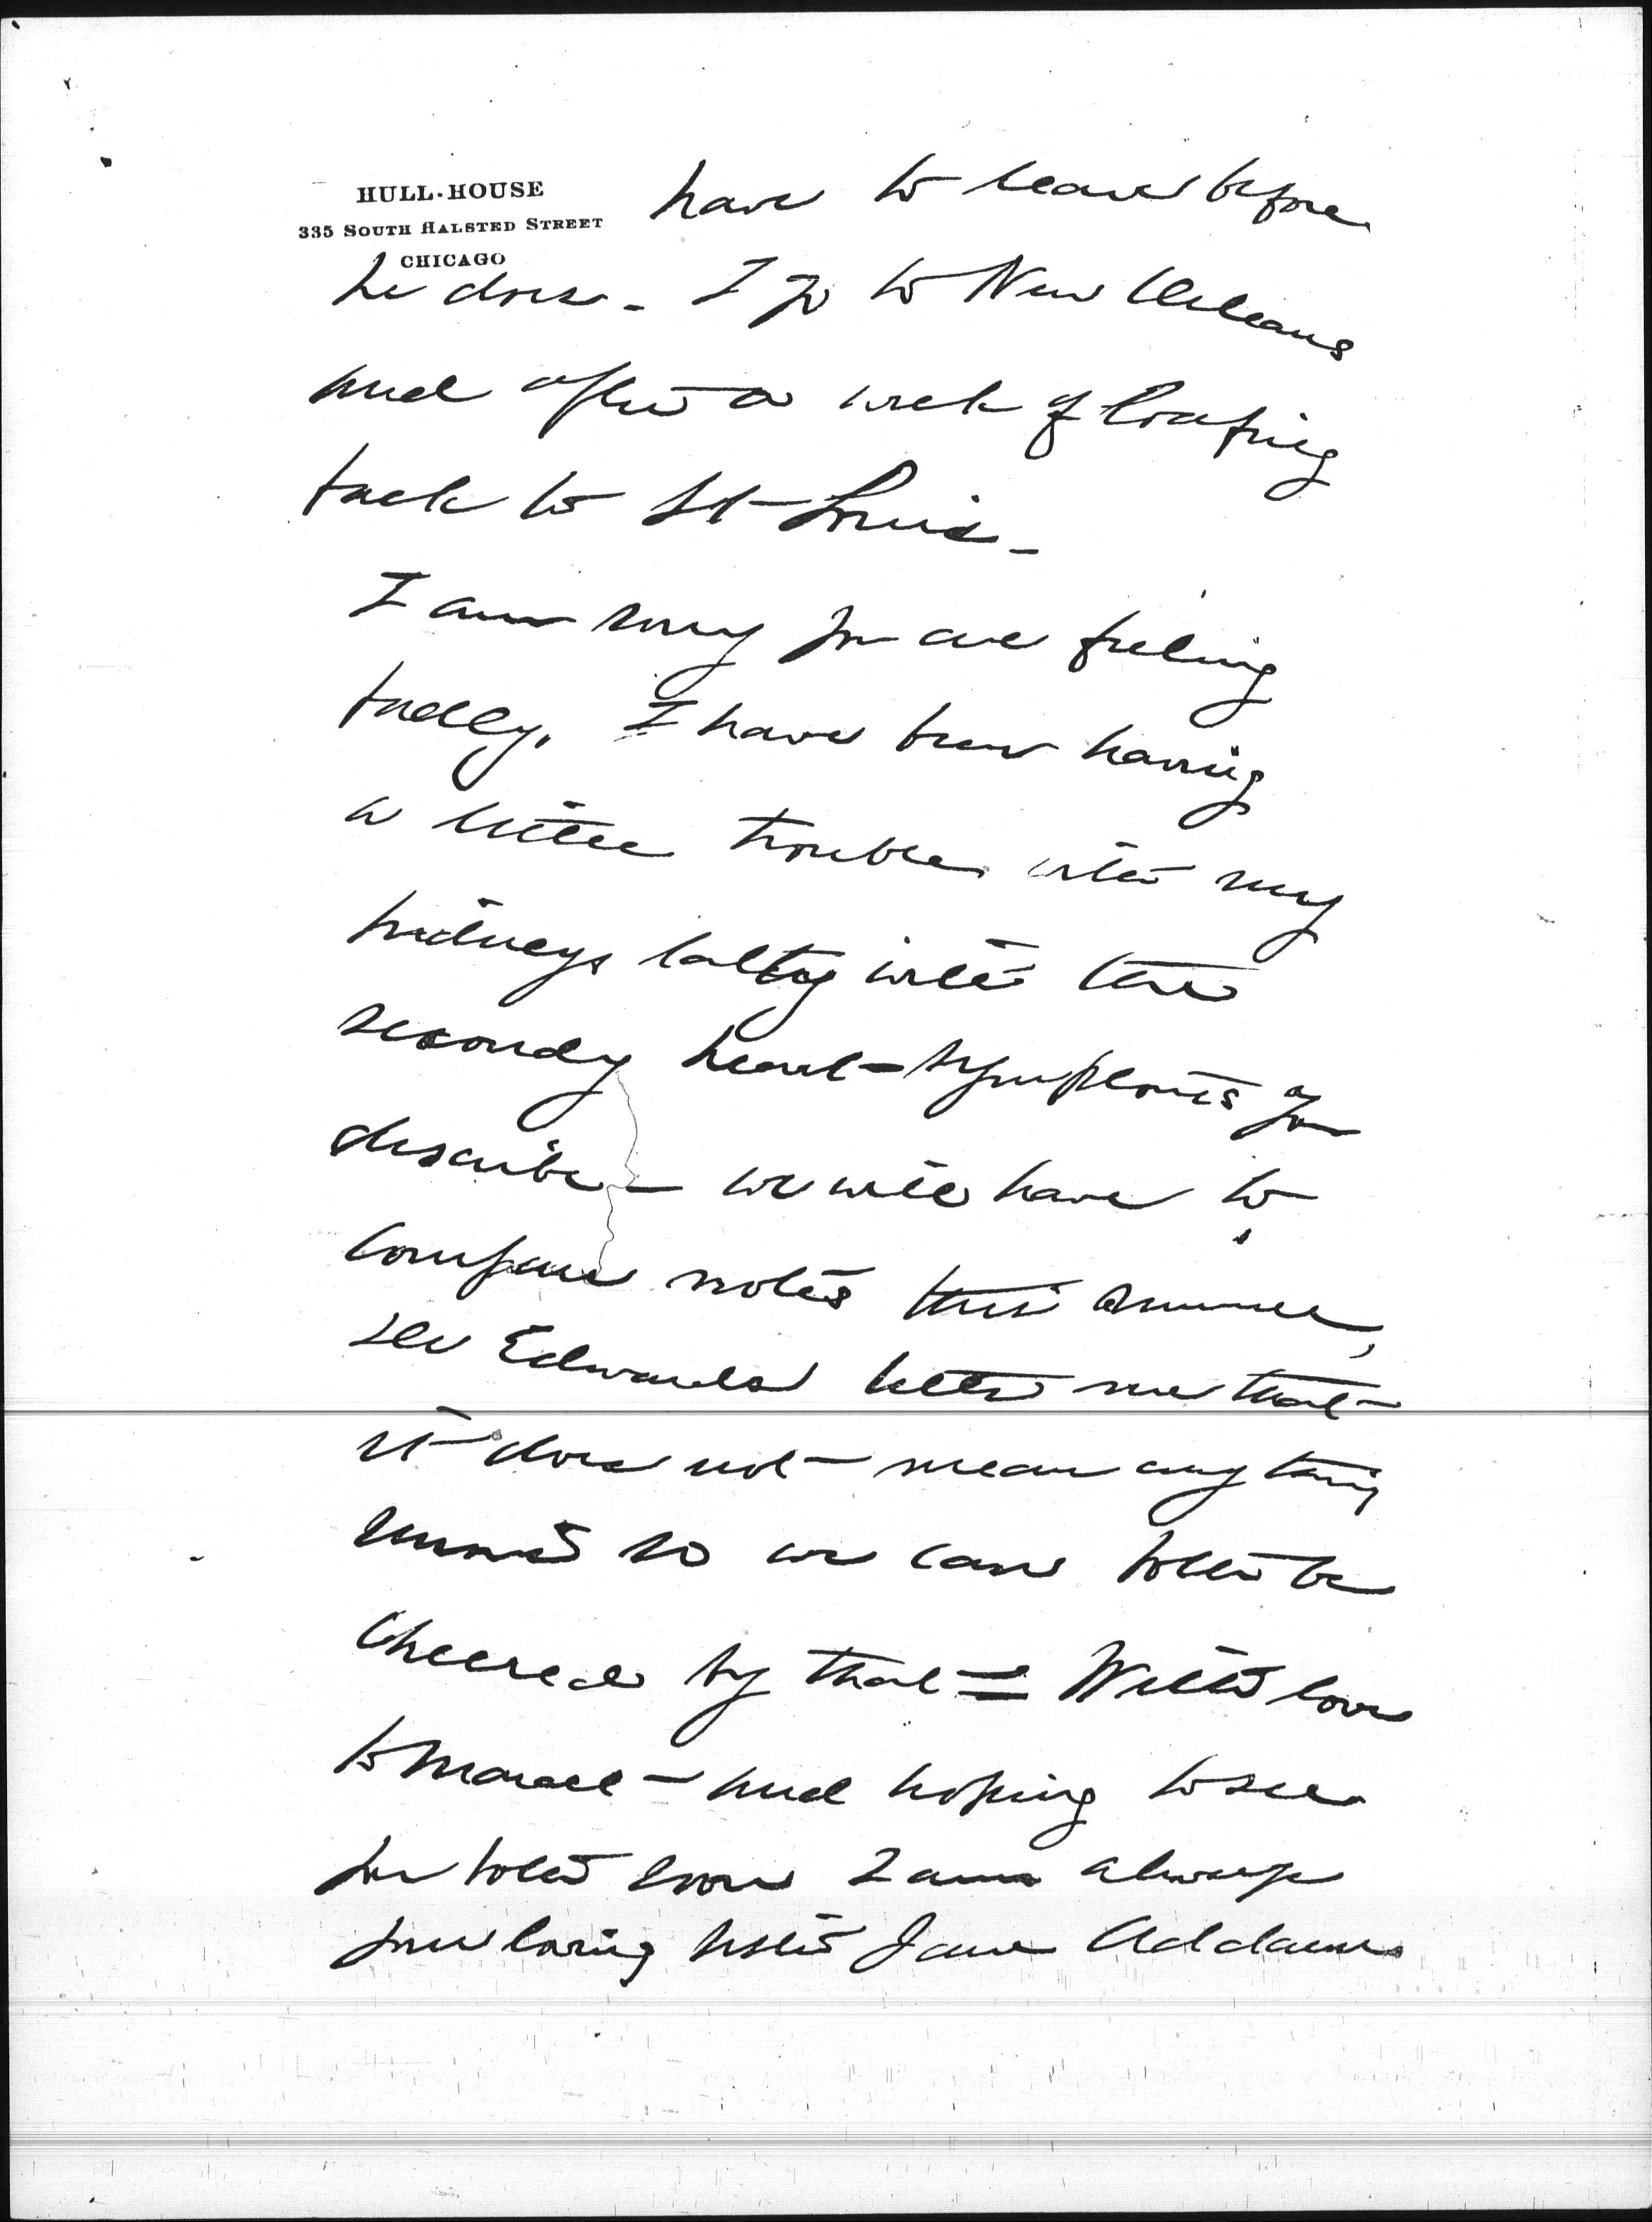 HULL-HOUSE
335 SOUTH HALSTED STREET
CHICAGO
have to leave before
he does - I go to New Orleans
and after a week of loafing
back to St Louis -
I am sorry you are feeling
badly, I have been having
a little trouble with my
kidneys latly with the
secondy heart-symptoms you
describe - we will have to
compare notes this summer,
Edwards tells me that
it does not mean any thing
so we can both be
cheered by that = With love
to Marcet - and hoping to see
you both soon I am always
your loving sister Jane Addams